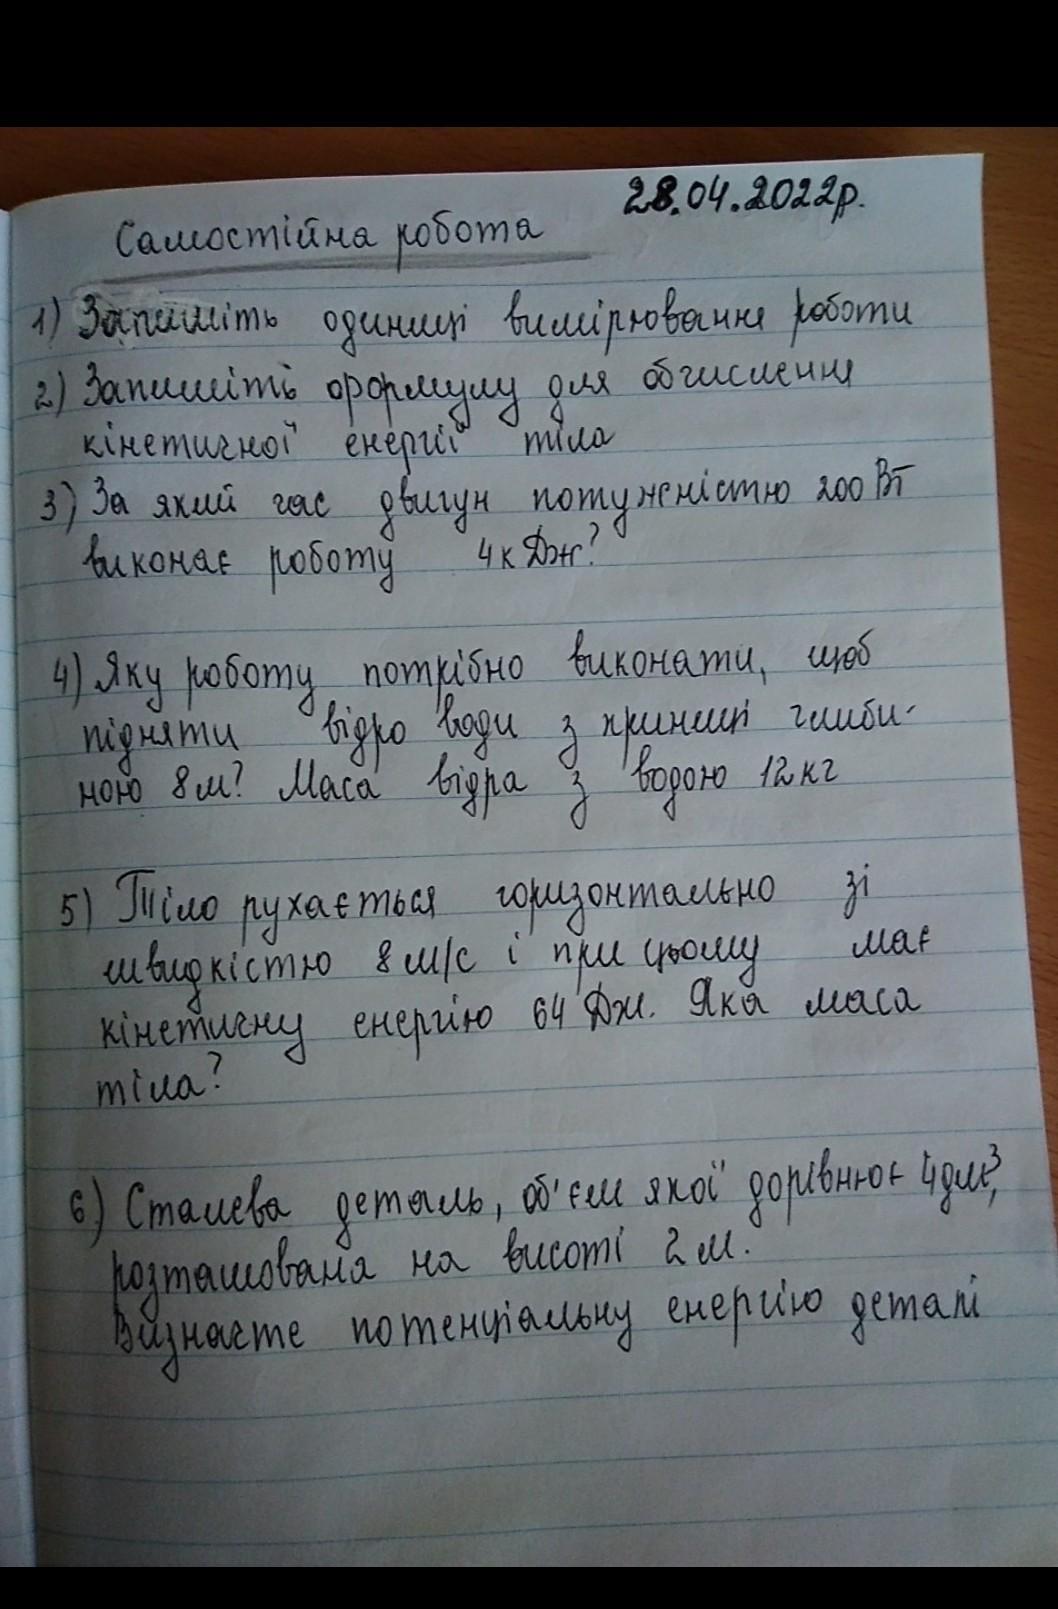 28.04.2022р.
Самостійна робота
1) Запишіть одиниці вимірювання роботи
2) Запишіть формулу для обчислення
кінетичної енергії тіла
3) За який час двигун потужністю 200 Вт
виконає роботу 4 кДж?
4) Яку роботу потрібно виконати, щоб
підняти відро води з криниці глиби-
ною 8 м? Маса відра з водою 12 кг
5) Тіло рухається горизонтально зі
швидкістю 8 м/с і при цьому має
кінетичну енергію 64 Дж. Яка маса
тіла?
6) Сталева деталь, об'єм якої дорівнює 4 дм³,
розташована на висоті 2 м.
Визнаєте потенціальну енергію деталі